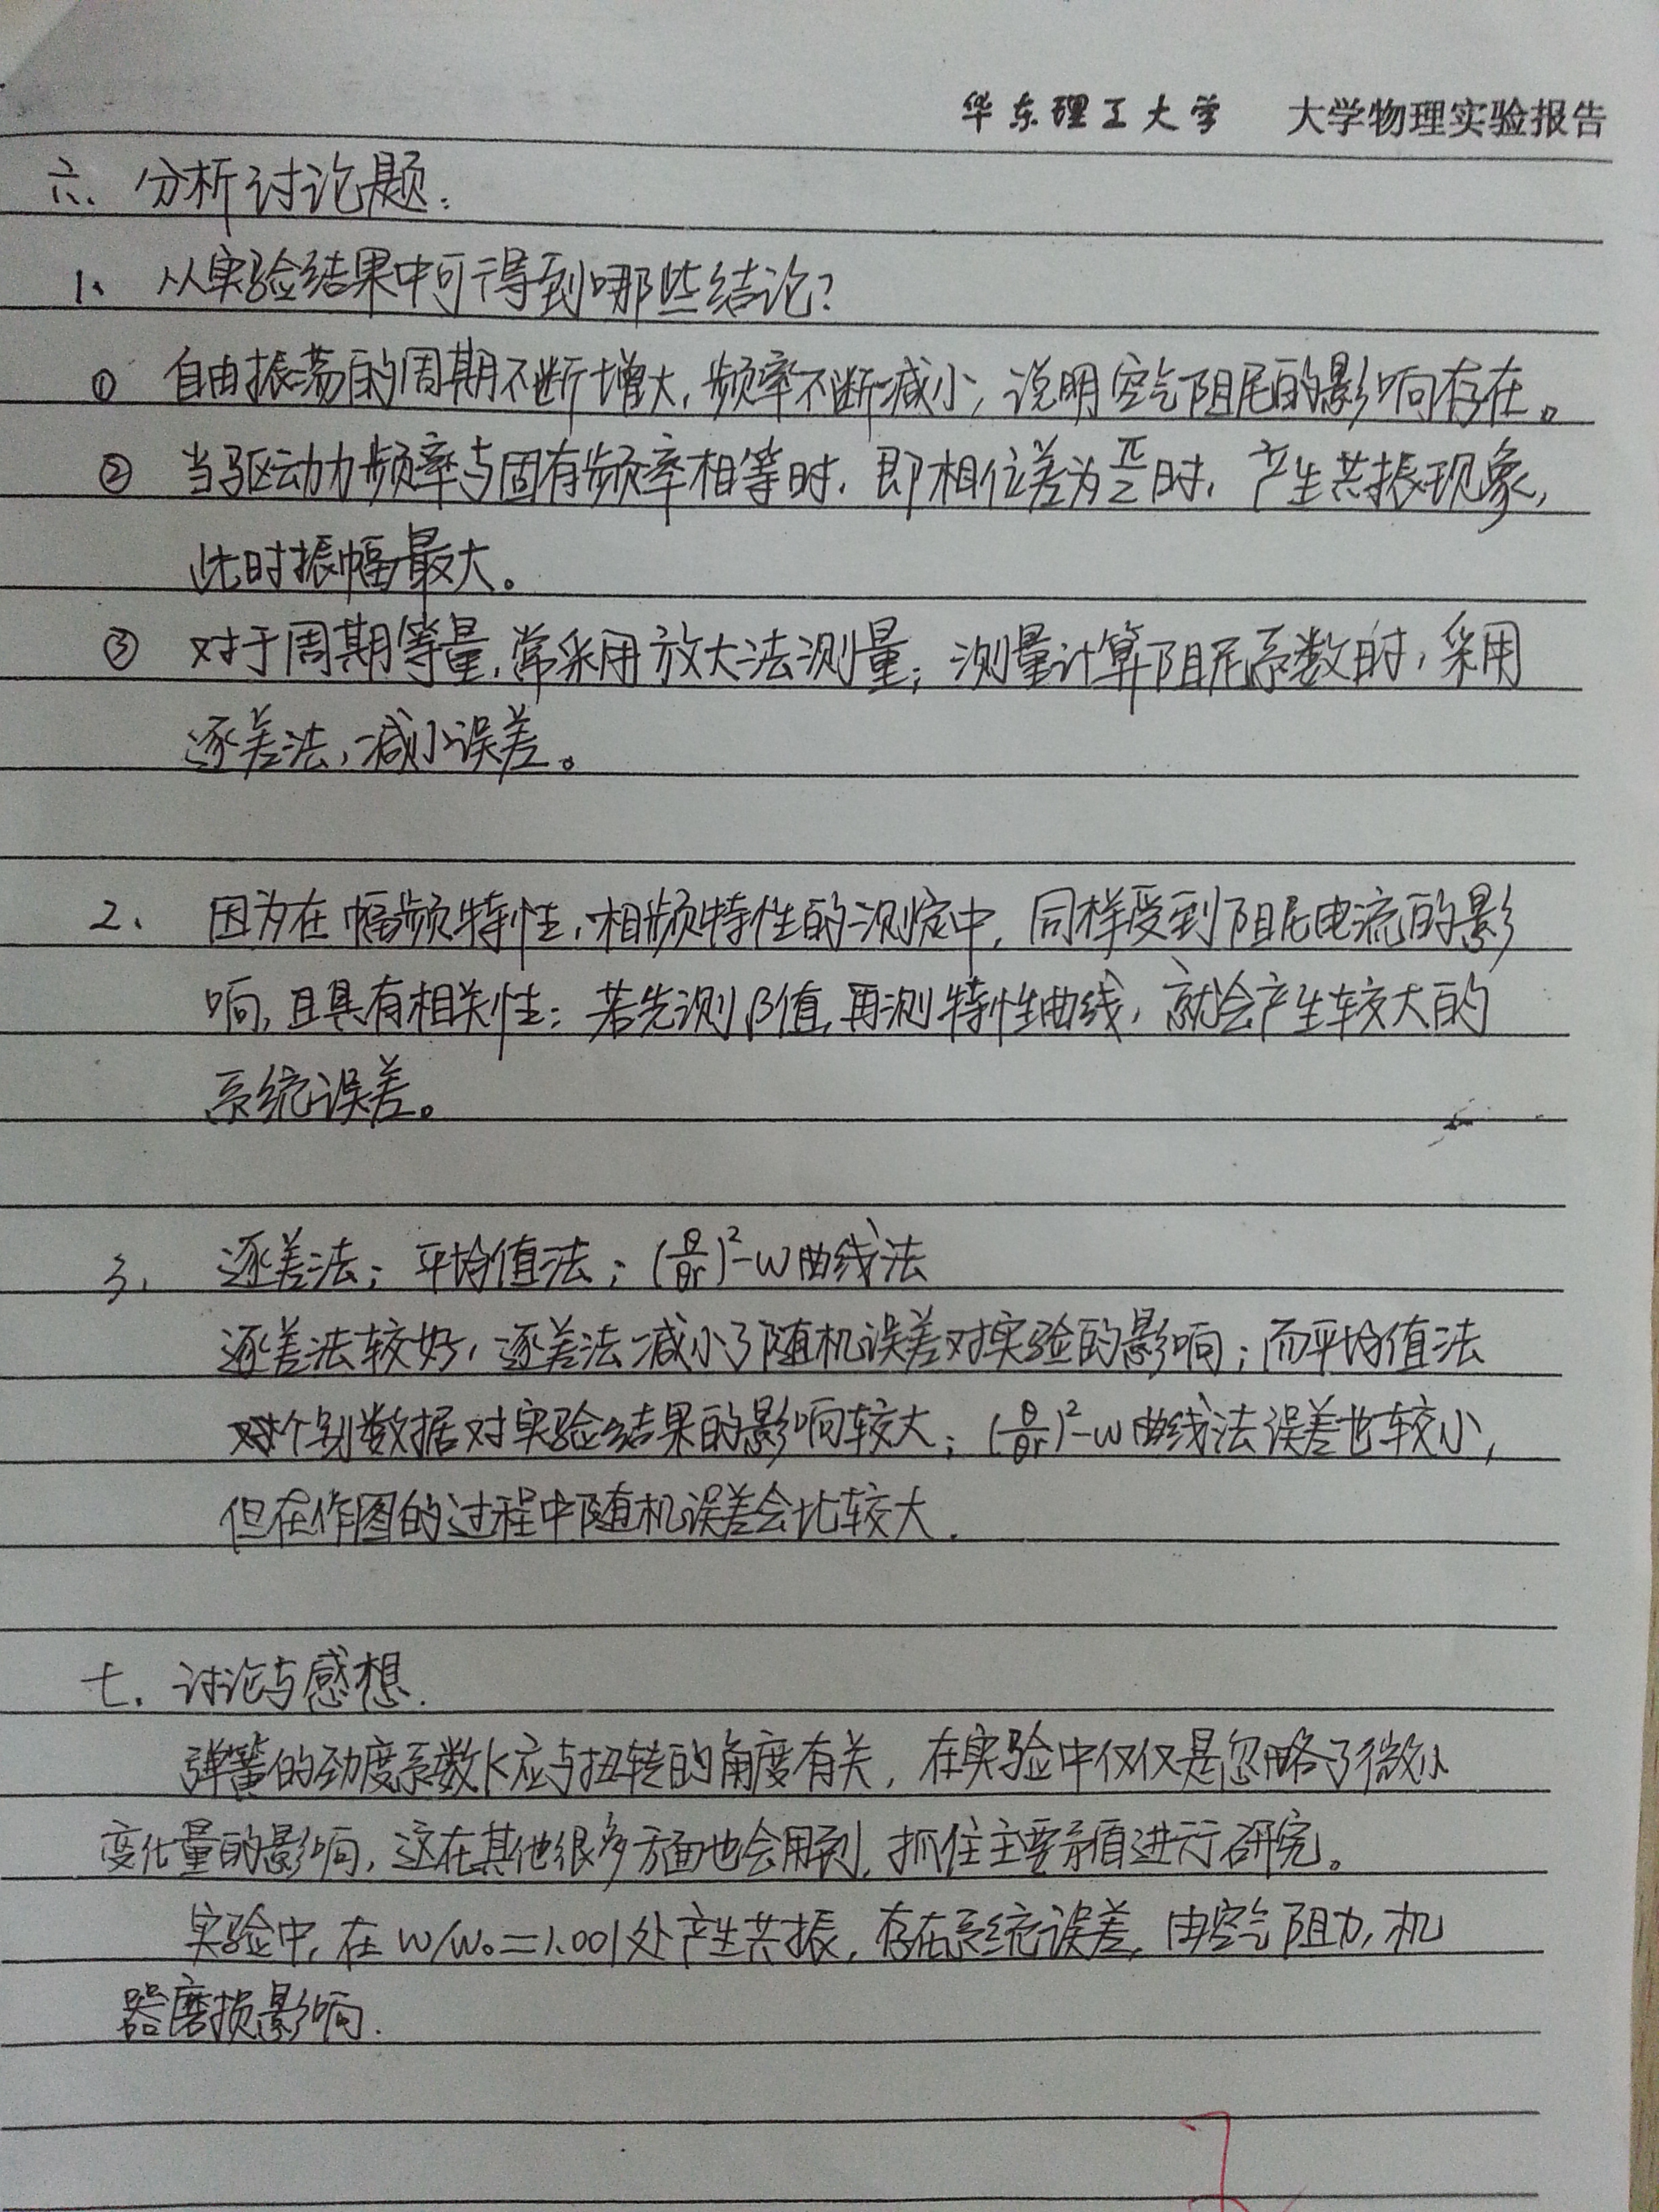 华东理工大学 大学物理实验报告
六、分析讨论题:
1、从实验结果中可得到哪些结论?
① 自由振荡的周期不断增大,频率不断减小,说明空气阻尼的影响存在。
② 当驱动力频率与固有频率相等时,即相位差为π/2时,产生共振现象,
此时振幅最大。
③ 对于周期等量,常采用放大法测量;测量计算阻尼系数时,采用
逐差法,减小误差。
2、因为在幅频特性,相频特性的测定中,同样受到阻尼电流的影
响,且具有相关性;若先测β值,再测特性曲线,就会产生较大的
系统误差。
3、逐差法;平均值法;(θ/θr)²-ω曲线法
逐差法较好,逐差法减小了随机误差对实验的影响;而平均值法
个别数据对实验结果的影响较大;(θ/θr)²-ω曲线法误差也较小,
但在作图的过程中随机误差会比较大.
七.讨论与感想.
弹簧的劲度系数k应与扭转的角度有关,在实验中仅仅是忽略了微小
变化量的影响,这在其他很多方面也会用到,抓住主要矛盾进行研究。
实验中,在ω/ω₀=1.001处产生共振,存在系统误差,由空气阻力,机
器磨损影响.